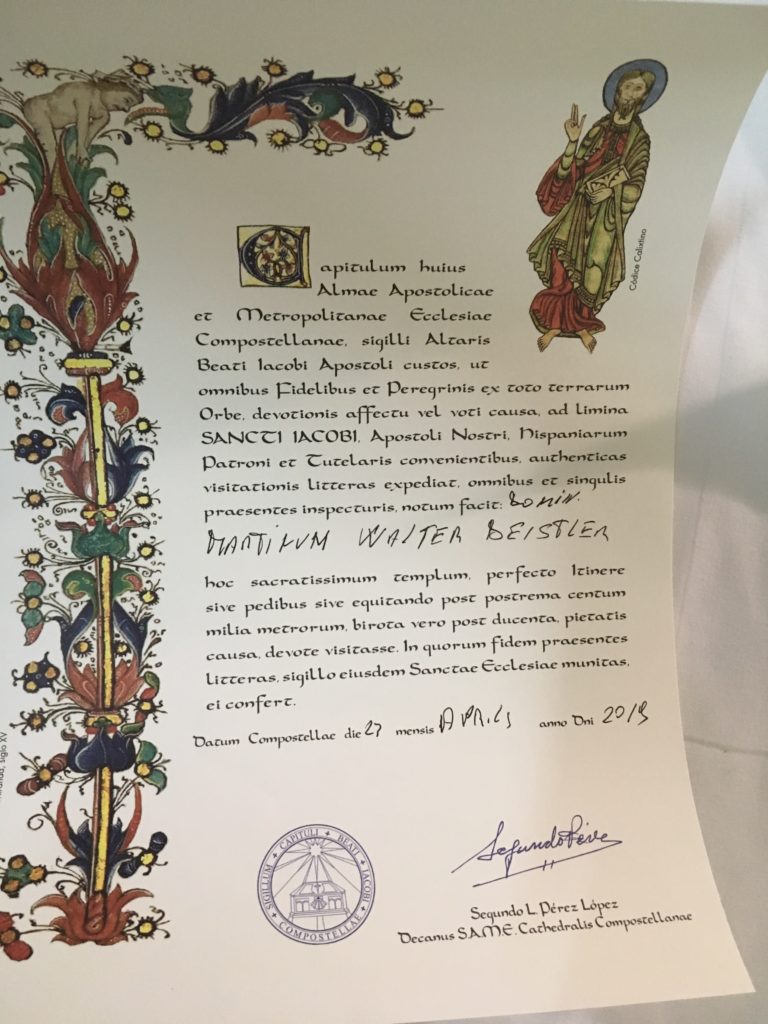 Códice Calixtino
Capitulum huius
Almae Apostolicae
et Metropolitanae Ecclesiae
Compostellanae, sigilli Altaris
Beati Iacobi Apostoli custos, ut
omnibus Fidelibus et Peregrinis ex toto terrarum
Orbe, devotionis affectu vel voti causa, ad limina
SANCTI IACOBI, Apostoli Nostri, Hispaniarum
Patroni et Tutelaris convenientibus, authenticas
visitationis litteras expediat, omnibus et singulis
praesentes inspecturis, notum facit: Domin.
MARTINUM WALTER DEISTLER
hoc sacratissimum templum, perfecto Itinere
sive pedibus sive equitando post postrema centum
milia metrorum, birota vero post ducenta, pietatis
causa, devote visitasse. In quorum fidem praesentes
litteras, sigillo eiusdem Sanctae Ecclesiae munitas,
ei confert.
Datum Compostellae die 27 mensis APRILIS anno Dni 2019
siglo XV
SIGILLUM CAPITULI BEATI JACOBI COMPOSTELLAE
Segundo Pérez
Segundo L. Pérez López
Decanus S.A.M.E. Cathedralis Compostellanae